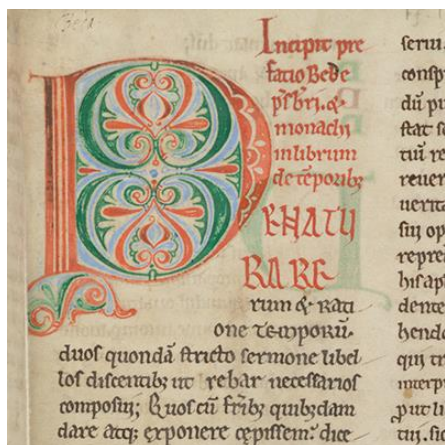 Incipit pre
fatio Bede
p̅sbri. &
monachi
in librum
de te̅poribꝫ
DE NATU
RA RE
rum & rati
one temporu̅.
duos quonda̅ stricto sermone libel
los discentibꝫ ut rebar necessarios
composui; Quos cu̅ fr̅ibꝫ quibꝫda̅
dare atqꝫ exponere cepissem: dice
serui
conspi
du̅ pu
stat se
tiu̅ re
reuer
uerita
sui op
repre
his ap
dente
hend
qui tr
interp
put li